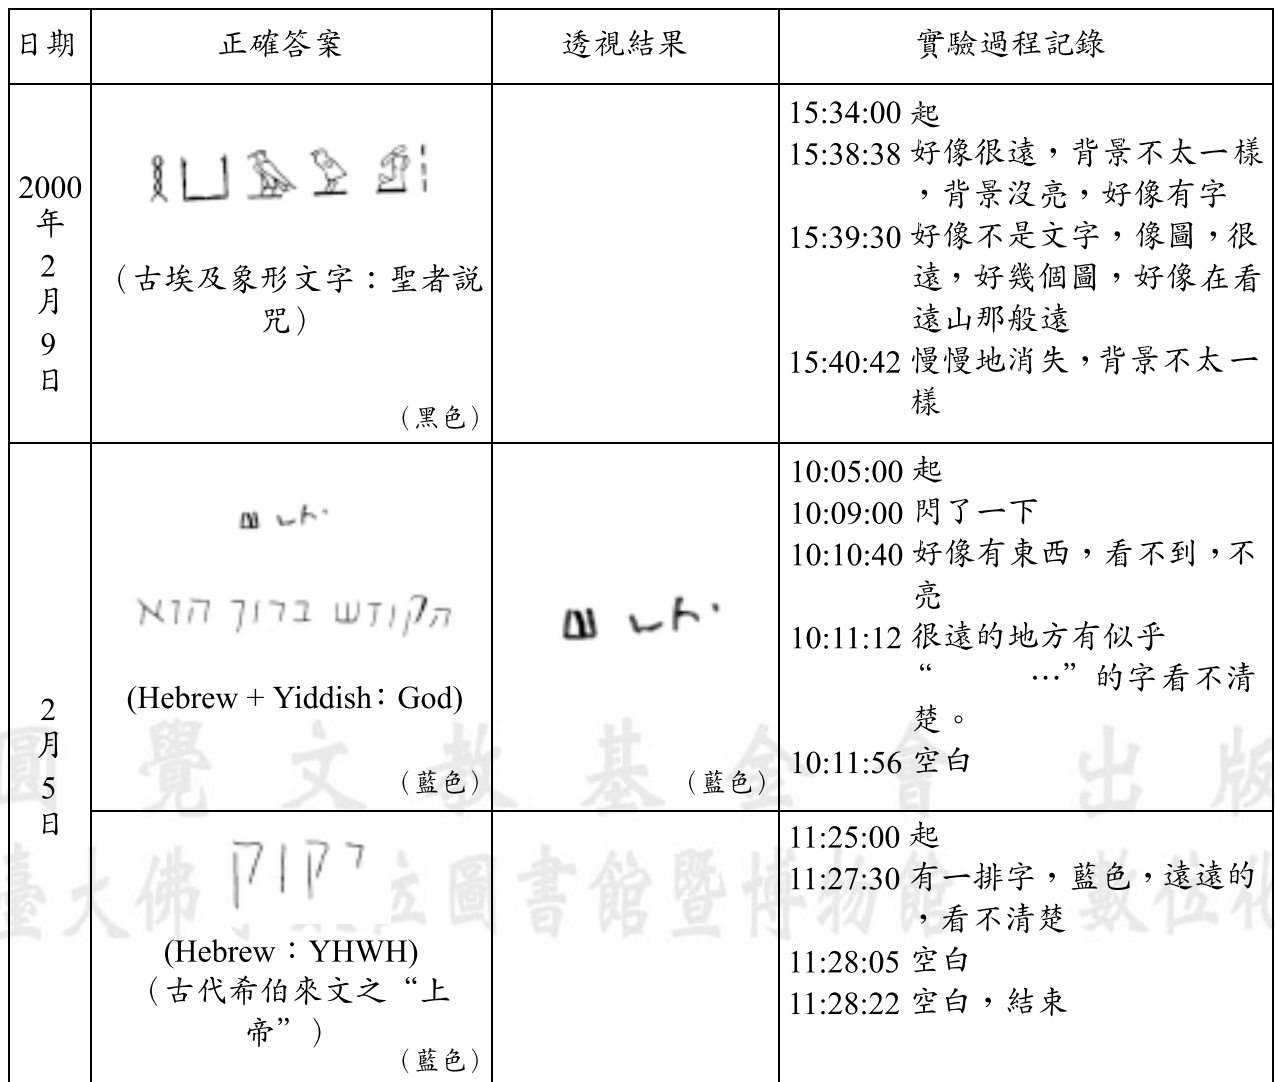 日期
正確答案
透視結果
實驗過程記錄
2000
年
2
月
9
日
(古埃及象形文字：聖者說
咒)
(黑色)
15:34:00 起
15:38:38 好像很遠，背景不太一樣
，背景沒亮，好像有字
15:39:30 好像不是文字，像圖，很
遠，好幾個圖，好像在看
遠山那般遠
15:40:42 慢慢地消失，背景不太一
樣
2
月
5
日
הקודש ברוך הוא
(Hebrew + Yiddish: God)
(藍色)
(藍色)
10:05:00 起
10:09:00 閃了一下
10:10:40 好像有東西，看不到，不
亮
10:11:12 很遠的地方有似乎
“ …”的字看不清
楚。
10:11:56 空白
יקוק
(Hebrew：YHWH)
(古代希伯來文之“上
帝”)
(藍色)
11:25:00 起
11:27:30 有一排字，藍色，遠遠的
，看不清楚
11:28:05 空白
11:28:22 空白，結束
圓覺文教基金會出版